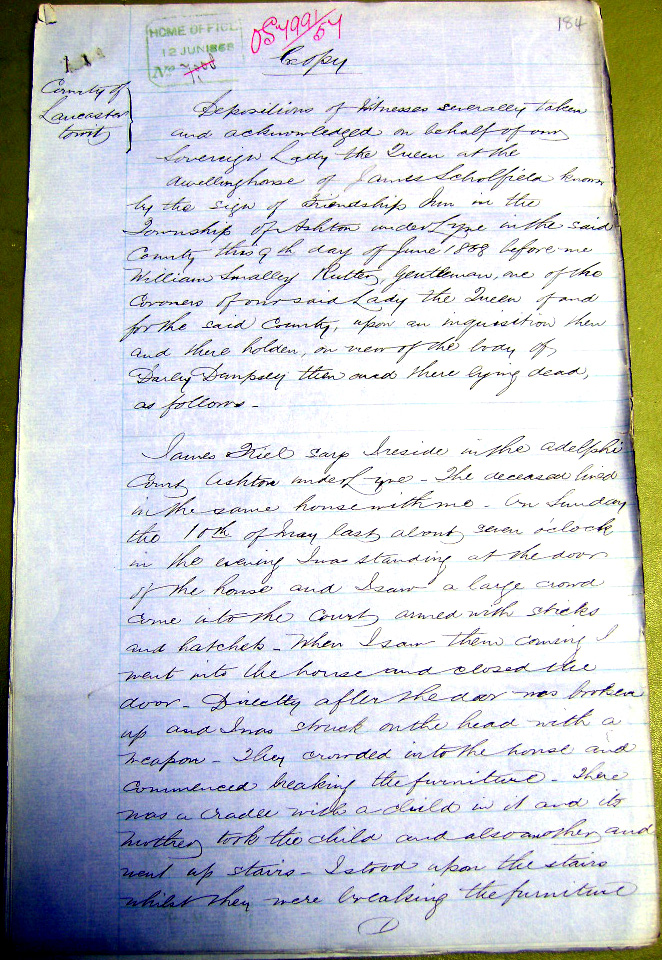 184
HOME OFFICE
12 JUN 1868
No
OS 7991/54
Copy
County of
Lancaster
towit
Depositions of Witnesses severally taken
and acknowledged on behalf of our
Sovereign Lady the Queen at the
dwellinghouse of James Scholfield known
by the sign of Friendship Inn in the
Township of Ashton under Lyne in the said
County this 9th day of June 1868 before me
William Smalley Rutter, Gentleman, one of the
Coroners of our said Lady the Queen of and
for the said County, upon an inquisition then
and there holden, on view of the body of
Darby Dempsey then and there lying dead,
as follows -
James Friel says I reside in the Adelphi
Court Ashton under Lyne - The deceased lived
in the same house with me - On Sunday
the 10th of May last about seven o'clock
in the evening I was standing at the door
of the house and I saw a large crowd
come into the Court, armed with sticks
and hatchets - When I saw them coming I
went into the house and closed the
door - Directly after the door was broken
up and I was struck on the head with a
weapon - They crowded into the house and
commenced breaking the furniture - There
was a cradle with a child in it and its
mother took the child and also another and
went up stairs - I stood upon the stairs
whilst they were breaking the furniture
1